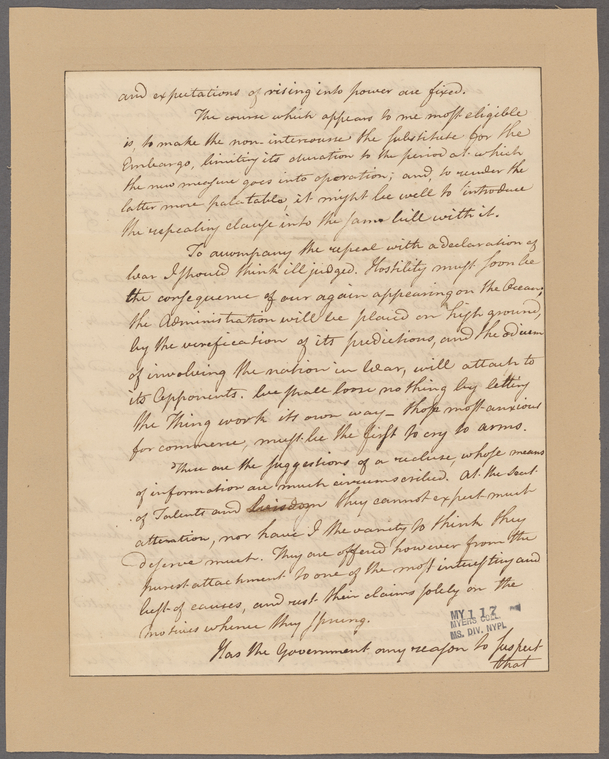 and expectations of rising into power are fixed.
The course which appears to me most eligible
is, to make the non-intercourse the substitute for the
Embargo, limiting its duration to the period at which
the new measure goes into operation; and, to render the
latter more palatable, it might be well to introduce
the repealing clause into the same bill with it.
To accompany the repeal with a declaration of
War I should think ill judged. Hostility must soon be
the consequence of our again appearing on the Ocean;
the Administration will be placed on high ground,
by the verification of its predictions, and the odium
of involving the nation in War, will attach to
its Opponents. We shall loose nothing by letting
the thing work its own way – those most anxious
for commerce, must be the first to cry to arms.
These are the suggestions of a recluse, whose means
of information are much circumscribed. At the seat
of Talents and wisdom they cannot expect much
attention, nor have I the vanity to think they
deserve much. They are offered however from the
purest attachment to one of the most interesting and
best of causes, and rest their claims solely on the
motives whence they spring.
Has the Government any reason to suspect
that
MY 117
MYERS COLL.
MS. DIV. NYPL